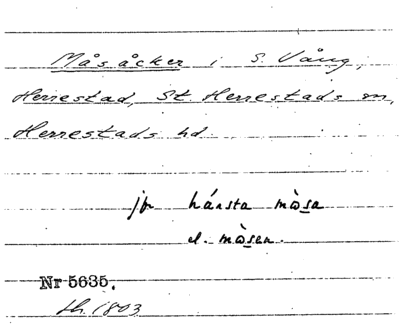 Måsåcker i S. Vång,
Herrestad, St. Herrestads sn,
Herrestads hd.
jfr hánsta mòsa
el. mòsen.
Nr 5635.
sh. 1803